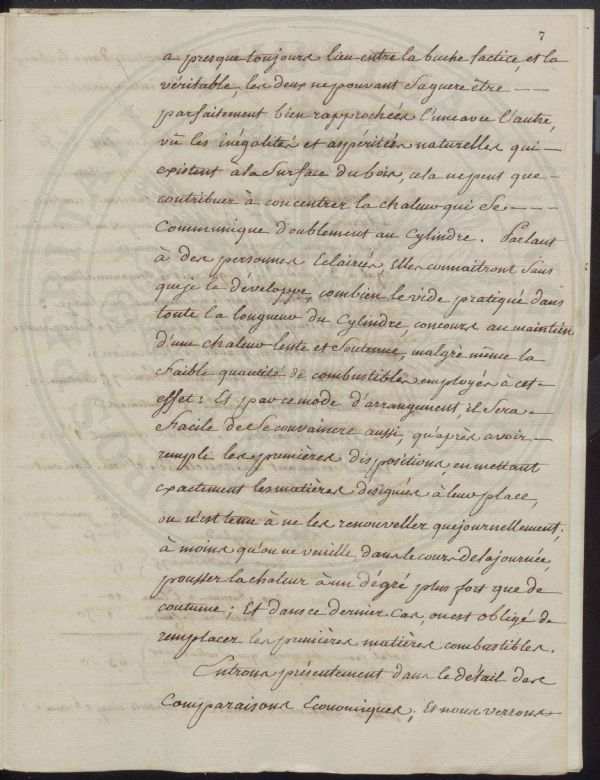 7
a presque toujours lieu entre la buche factice, et la
véritable, les deux ne pouvant Saguere être ---
parfaitement bien rapprochées l'une avec l'autre,
vû les inégalités et aspéritées naturelles qui -
existent à la Surface du bois, cela ne peut que -
contribuer à concentrer la chaleur qui Se ---
Communique doublement au Cylindre. Parlant
à des personnes Eclairées, Elles connaitront Sans
que je le développe, combien le vide pratiqué dans
toute la longueur du Cylindre, concours au maintien
d'une chaleur lente et Soutenue, malgré même la
faible quantité de combustibles employés à cet -
effet: Et par ce mode d'arrangement, il Sera -
Facile de Se convaincre aussi, qu'après avoir -
rempli les premières dispositions, en mettant
exactement les matières désignées à leur place,
on n'est tenu à ne les renouveller que journellement;
à moins qu'on ne veuille, dans le cours de la journée,
pousser la chaleur à un dégré plus fort que de
coutume; Et dans ce dernier Cas, on est obligé de
remplacer les premières matières combustibles.
Entrons présentement dans le détail des
Comparaisons Economiques; Et nous verrons